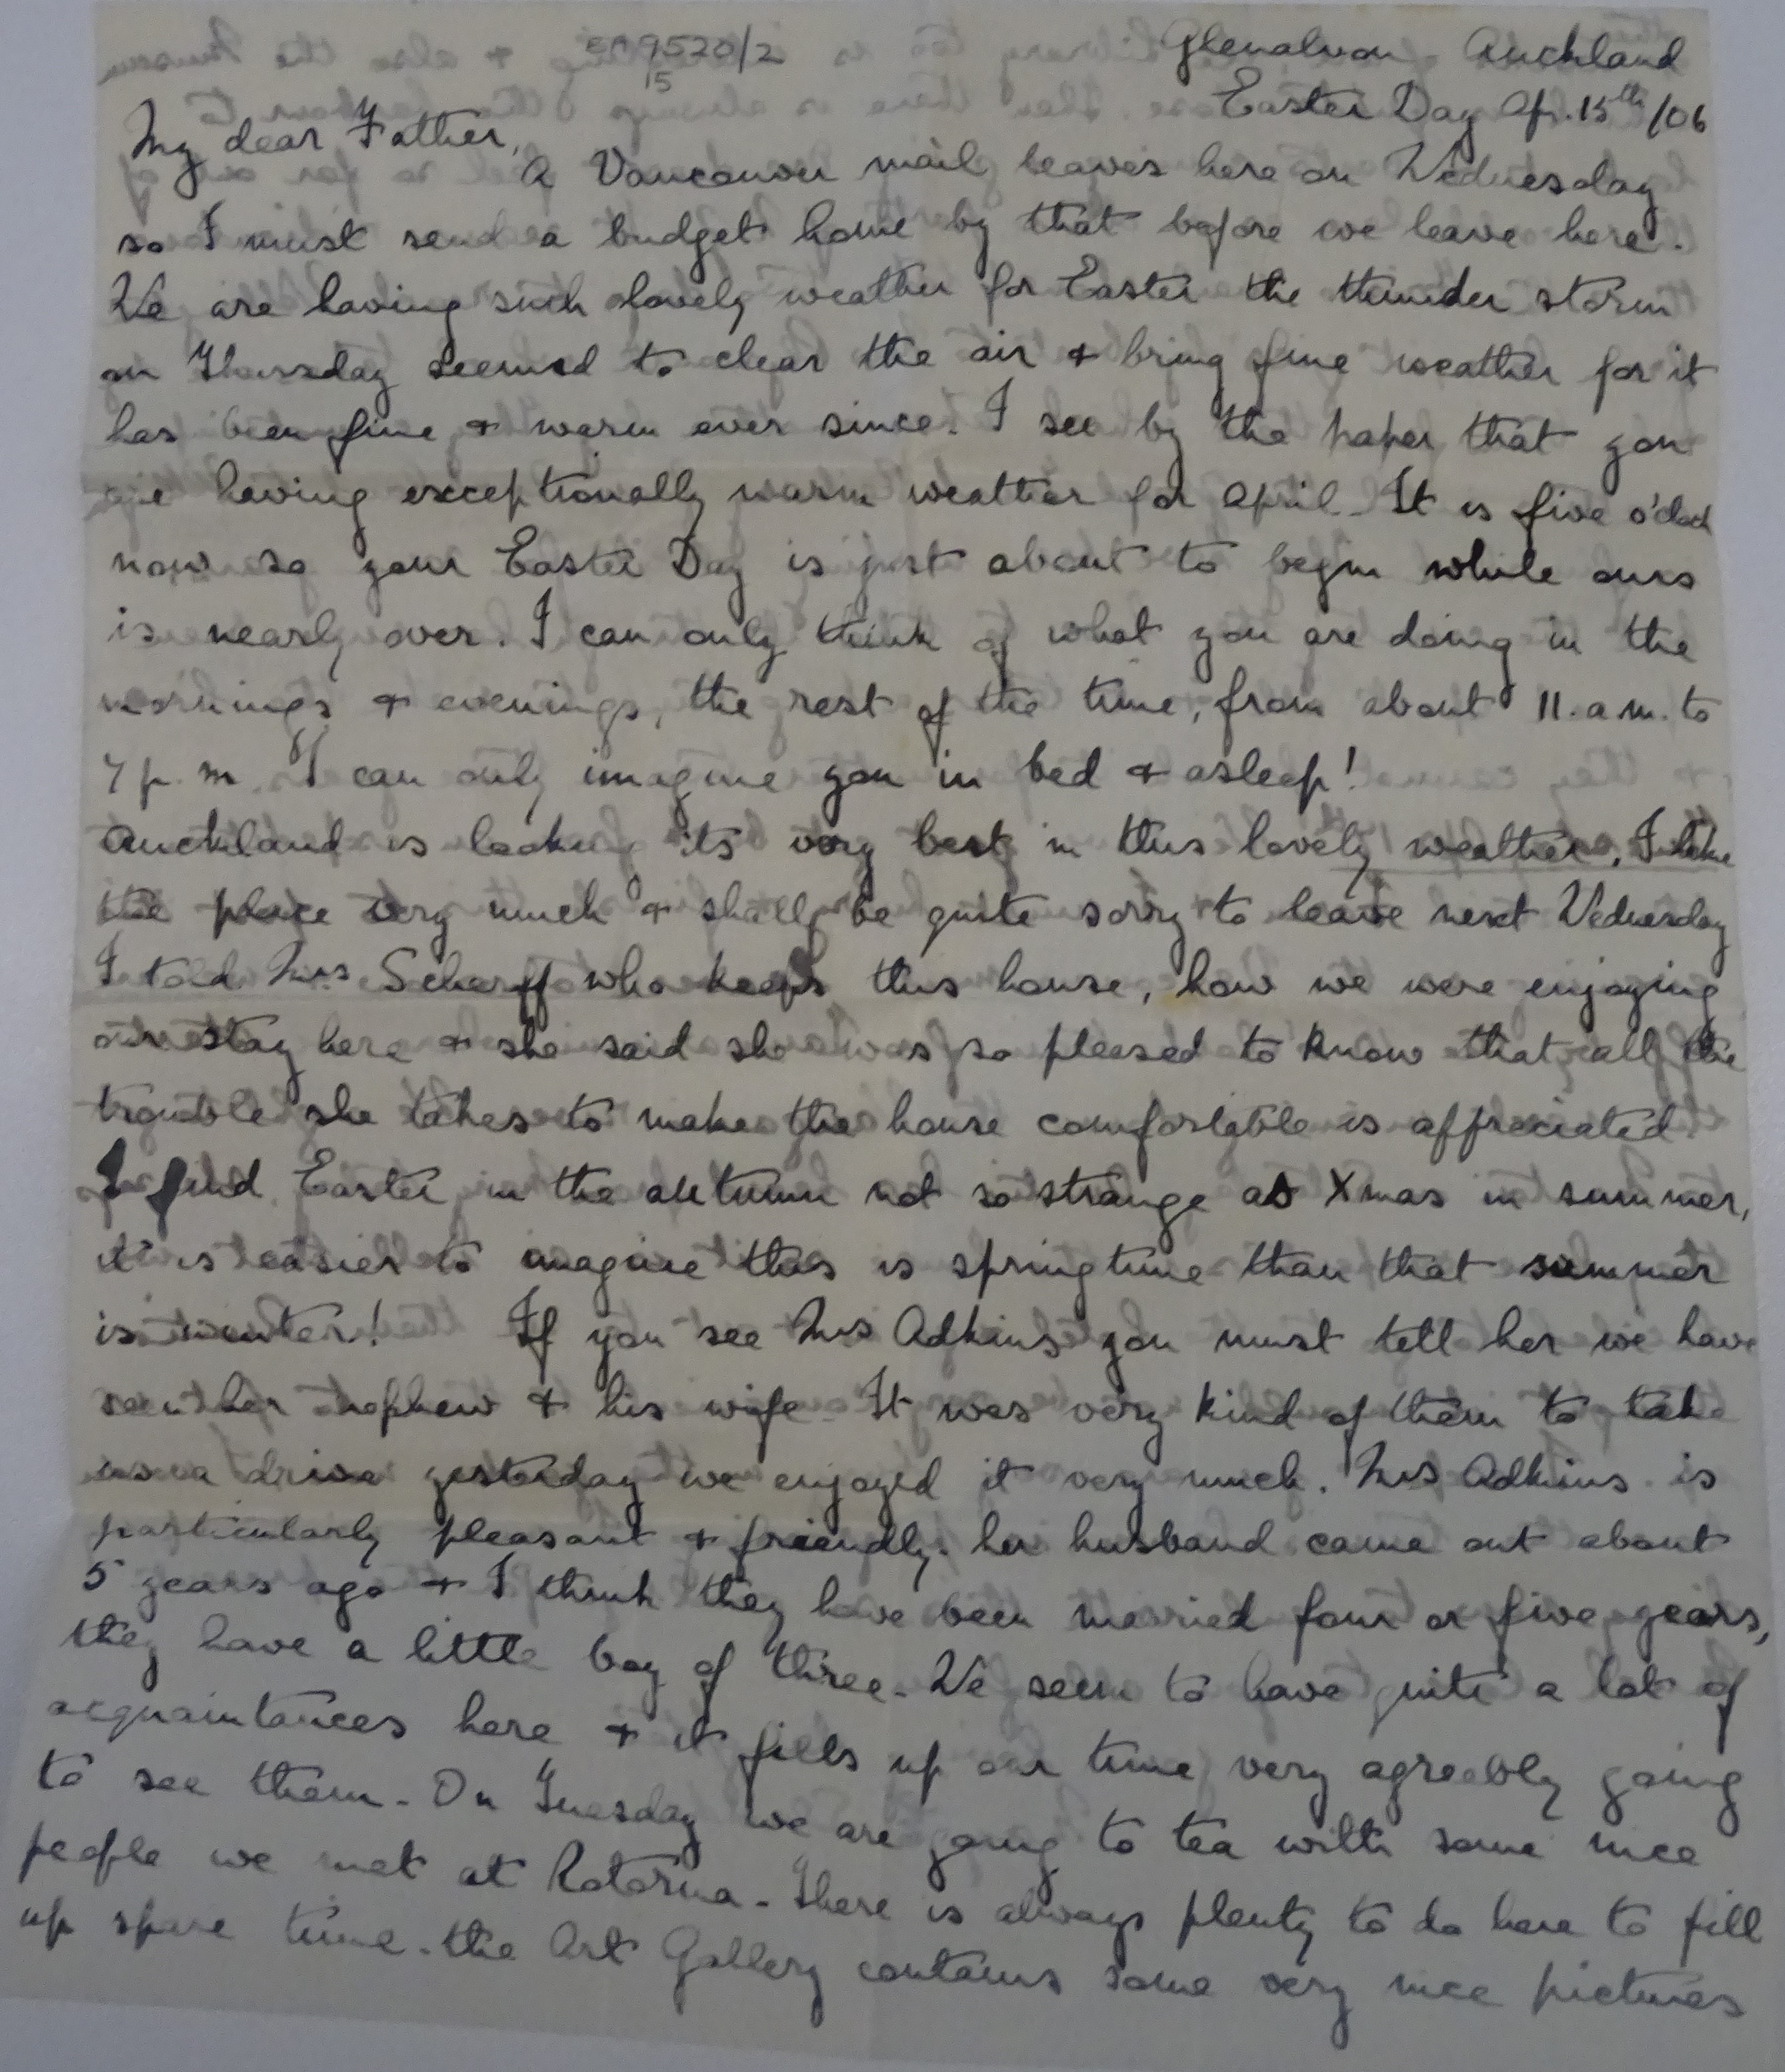 ER9520/2
15
Glenalvon Auckland
Easter Day Ap. 15th /06
My dear Father,
A Vancouver mail leaves here on Wednesday
so I must send a budget home by that before we leave here.
We are having such lovely weather for Easter the thunder storm
on Thursday seemed to clear the air & bring fine weather for it
has been fine & warm ever since. I see by the paper that you
are having exceptionally warm weather for April. It is five o'clock
now so your Easter Day is just about to begin while ours
is nearly over. I can only think of what you are doing in the
mornings & evenings, the rest of the time, from about 11. a.m. to
7 p.m. I can only imagine you in bed & asleep!
Auckland is looking its very best in this lovely weather. I like
the place very much & shall be quite sorry to leave next Wednesday
I told Mrs Scharff who keeps this house, how we were enjoying
our stay here & she said she was so pleased to know that all the
trouble she takes to make the house comfortable is appreciated
I find Easter in the autumn not so strange as Xmas in summer,
it is easier to imagine this is springtime than that summer
is winter! If you see Mrs Adkins you must tell her we have
seen her nephew & his wife. It was very kind of them to take
us a drive yesterday we enjoyed it very much. Mrs Adkins is
particularly pleasant & friendly. her husband came out about
5 years ago & I think they have been married four or five years,
they have a little boy of three. We seem to have quite a lot of
acquaintances here & it fills up our time very agreeably going
to see them. On Tuesday we are going to tea with some nice
people we met at Rotorua. There is always plenty to do here to fill
up spare time. the Art Gallery contains some very nice pictures